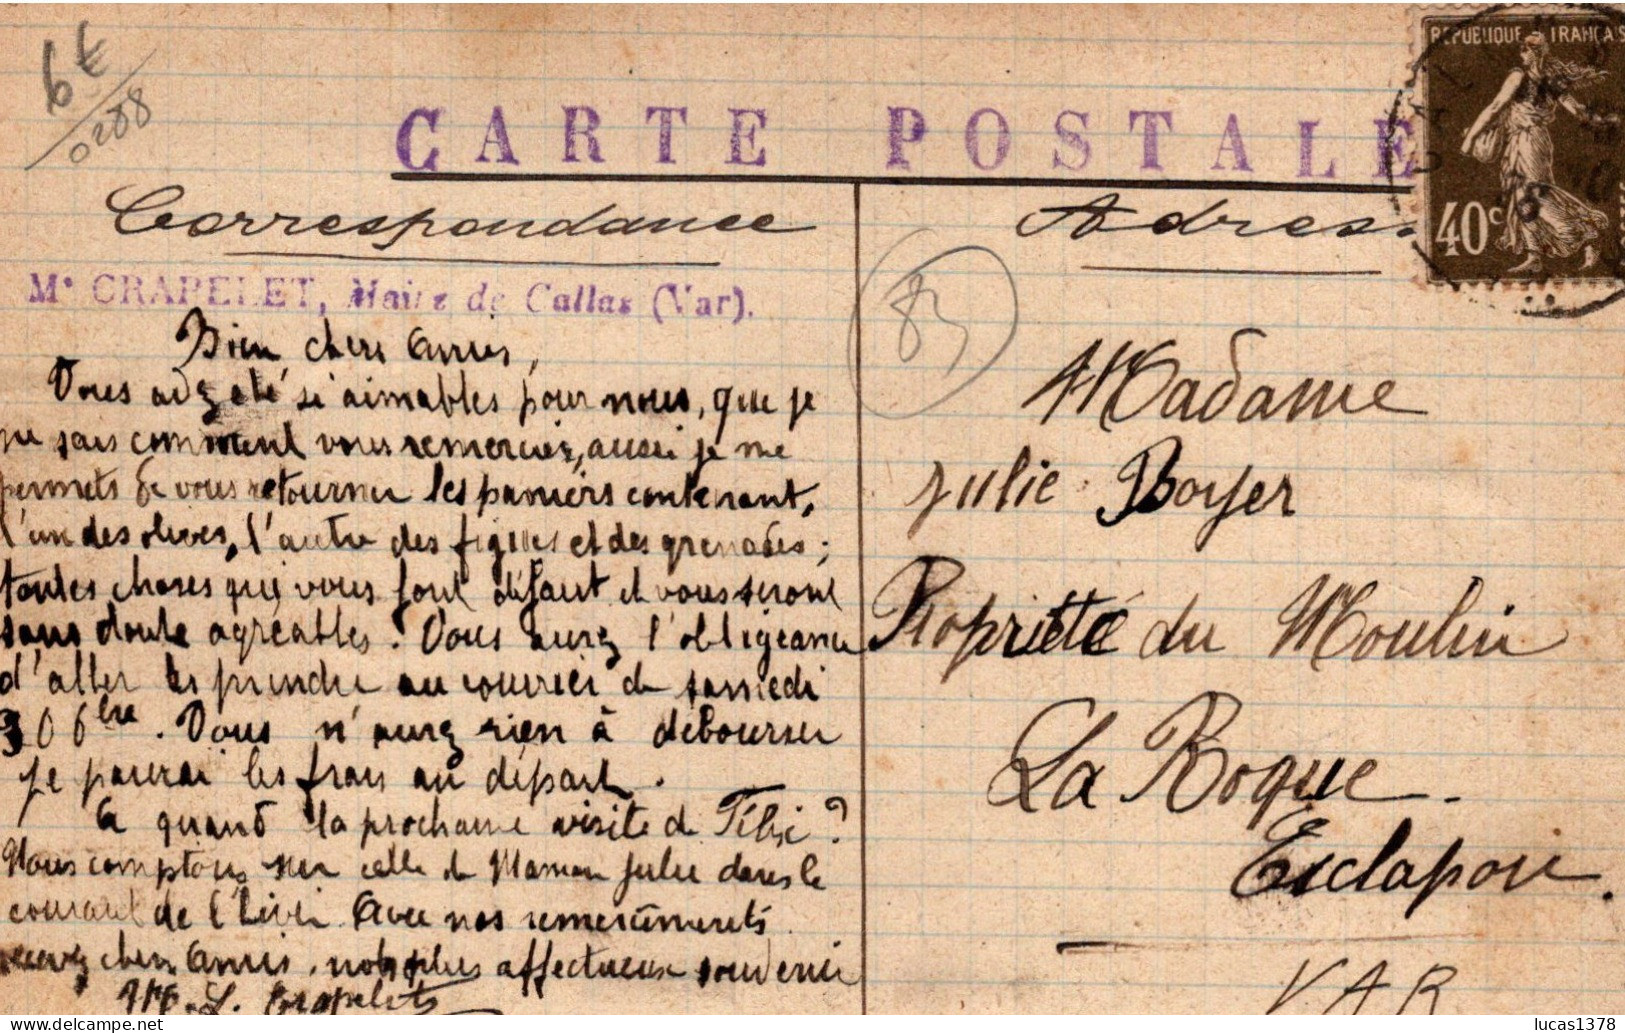 6€
0288
CARTE POSTALE
REPUBLIQUE FRANCAIS
40c
Correspondance
Adres.
Mᵉ CRAPELET, Maire de Callas (Var).
83
Bien chers Amis,
Vous avez été si aimables pour nous, que je
ne sais comment vous remercier, aussi je me
permets de vous retourner les paniers contenant,
l'un des olives, l'autre des figues et des grenades ;
toutes choses qui vous font défaut et vous seront
sans doute agréables. Vous aurez l'obligeance
d'aller les prendre au courrier de samedi
30 6bre. Vous n'aurez rien à débourser
je paierai les frais au départ.
A quand la prochaine visite de Félix ?
Nous comptons sur celle de Maman Julie dans le
courant de l'hiver. Avec nos remerciements
recevez chers Amis, nos plus affectueux souvenir
L. Crapelet
Madame
Julie Boyer
Propriété du Moulin
La Roque.
Esclapon.
VAR
lucas1378